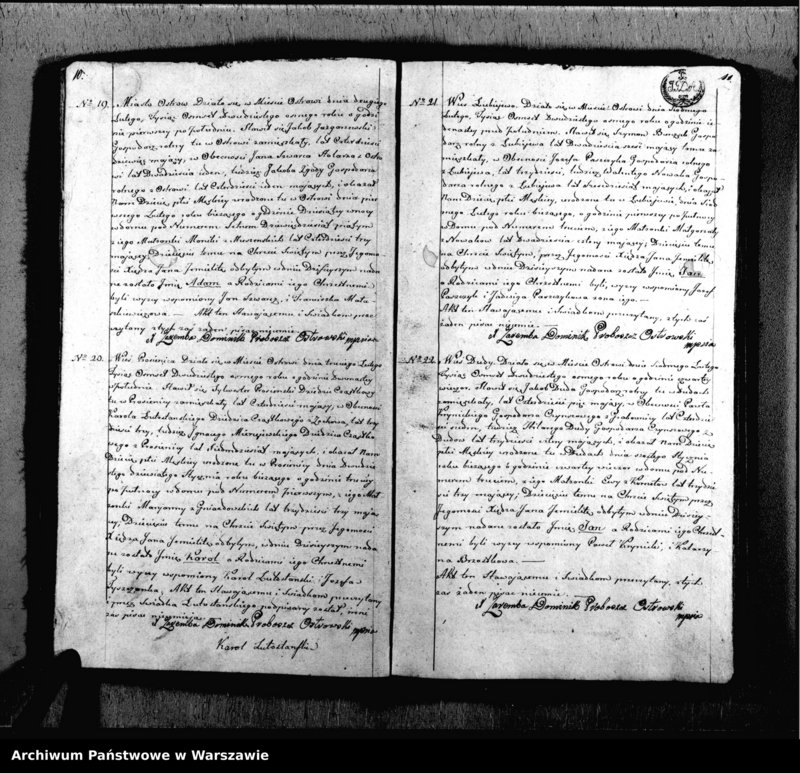 10.
№ 19. Miasto Ostrow Działo się w Mieście Ostrowi dnia drugiego
Lutego, Tysiąc Osmset Dwudziestego osmego roku o godzi
nie pierwszy po południu. Stawił się Jakob
Gospodarz rolny tu w Ostrowi zamieszkały, lat Czterdzieści
dziewięć mający, w Obecności Jana Szwarca Stolarza z Ostro
wi lat Dwadzieścia ieden, tudzież Jakoba Zgody Gospodarza
rolnego z Ostrowi lat Czterdzieści ieden mających, i okazał
Nam Dziecię płci Męskiey urodzone tu w Ostrowi dnia pier
wszego Lutego roku bieżącego o godzinie Dziesiąty wnocy
wdomu pod Numerem Setnym Dziewięćdziesiąt piątym
z iego Małżonki Monki z lat Czterdzieści trzy
maiący, Dziecięciu temu na Chrzcie Świętym przez Jegomo
ści Xiędza Jana Jemielitę odbytym wdniu Dzisieyszym nada
ne zostało Jmię Adam a Rodzicami iego Chrzestnemi
byli wyżey wspomniony Jan Szwarc, i Franciszka Mata
Akt ten Stawaiącemu i Swiadkom prze
czytany zktórych żaden pisać nieumie
X Zaremba Dominik Proboszcz Ostrowski mpria
№ 20. Wieś Prosienica Działo się w Mieście Ostrowi dnia trzeciego Lutego
Tysiąc Osmset Dwudziestego osmego roku o godzinie Dwunasty
wpołudnie Stawił się Sylwester Prosienski Dziedzic Cząstkowy
tu w Prosienicy zamieszkały, lat Czterdzieści mający, w Obecności
Karola Lutostanskiego Dziedzica Cząstkowego z lat trzy
dzieści trzy, tudzież Jgnacego Mierzejewskiego Dziedzica Cząstko
wego z Prosienicy lat Siedmdziesiąt mających, i okazał Nam
Dziecię płci Męskiey urodzone tu w Prosienicy dnia Dwudzie
stego dziewiątego Stycznia roku bieżącego o godzinie trzeciy
po północy wdomu pod Numerem Pierwszym, z iego Mał
żonki Maryanny z Gniazdowskich lat trzydzieści trzy maią
cy, Dziecięciu temu na Chrzcie Świętym przez Jegomości
Xiędza Jana Jemielitę odbytym, wdniu Dzisieyszym nada
ne zostało Jmię Karol a Rodzicami iego Chrzestnemi
byli wyżey wspomniony Karol Lutostanski i Jozefa
Akt ten Stawaiącemu i Swiadkom przeczytany
i przez Swiadka Lutostanskiego podpisany został, inni
zaś pisać nieumieią
X Zaremba Dominik Proboszcz Ostrowski mpria
Karol Lutostański
11.
№ 21. Wieś Lubiejewo. Działo się w Mieście Ostrowi dnia Siodmego
Lutego, Tysiąc Osmset Dwudziestego osmego roku o godzinie ie
denasty przed południem. Stawił się Szymon Gospo
darz rolny z Lubiejewa lat Dwadzieścia sześć maiący temu za
mieszkały, w Obecności Jozefa Paszczyka Gospodarza rolnego
z Lubiejewa, lat trzydzieści, tudzież Walentego Nowaka Gospo
darza rolnego z Lubiejewa lat maiących, i okazał
Nam Dziecię płci Męskiey, urodzone tu w Lubiejewie dnia Siod
mego Lutego roku bieżącego, o godzinie pierwszy po północy
w Domu pod Numerem trzecim, z iego Małżonki Małgorzaty
z Nowakow, lat Dwadzieścia cztery maiący; Dziecięciu temu
na Chrzcie Świętym, przez Jegomości Xiędza Jana Jemielitę
odbytym wdniu Dzisieyszym nadane zostało Jmię Jan
a Rodzicami iego Chrzestnemi, byli wyżey wspomniony Jozef
Paszczyk i Jadwiga Paszczykowa żona iego.
Akt ten Stawaiącemu i Swiadkom przeczytany, zktórych zaś
żaden pisać nieumie.
X Zaremba Dominik Proboszcz Ostrowski mpria
№ 22. Wieś Dudy Działo się w Mieście Ostrowi dnia Siodmego Lutego
Tysiąc Osmset Dwudziestego osmego roku o godzinie czwarty
wieczor. Stawił się Jakob Duda Gospodarz rolny tu w Dudach
zamieszkały, lat Czterdzieści pięć maiący, w Obecności Pawła
Krynickiego Gospodarza Czynszowego z Grabownicy lat Czterdzie
ści siedm, tudzież Hilarego Dudy Gospodarza Czynszowego z
Dudow lat trzydzieści cztery maiących, i okazał Nam Dziecię
płci Męskiey urodzone tu w Dudach dnia szostego Stycznia
roku bieżącego o godzinie czwarty wieczor w domu pod Nu
merem trzecim, z iego Małżonki Ewy z lat trzydzie
ści trzy maiący, Dziecięciu temu na Chrzcie Świętym przez
Jegomości Xiędza Jana Jemielitę odbytym wdniu Dzisiey
szym nadane zostało Jmię Jan a Rodzicami iego Chrzest
nemi byli wyżey wspomniony Paweł Krynicki, i Katarzy
na Brzostkowa.
Akt ten Stawaiącemu i Swiadkom przeczytany, zktórych
zaś żaden pisać nieumie.
X Zaremba Dominik Proboszcz Ostrowski mpria
Archiwum Państwowe w Warszawie